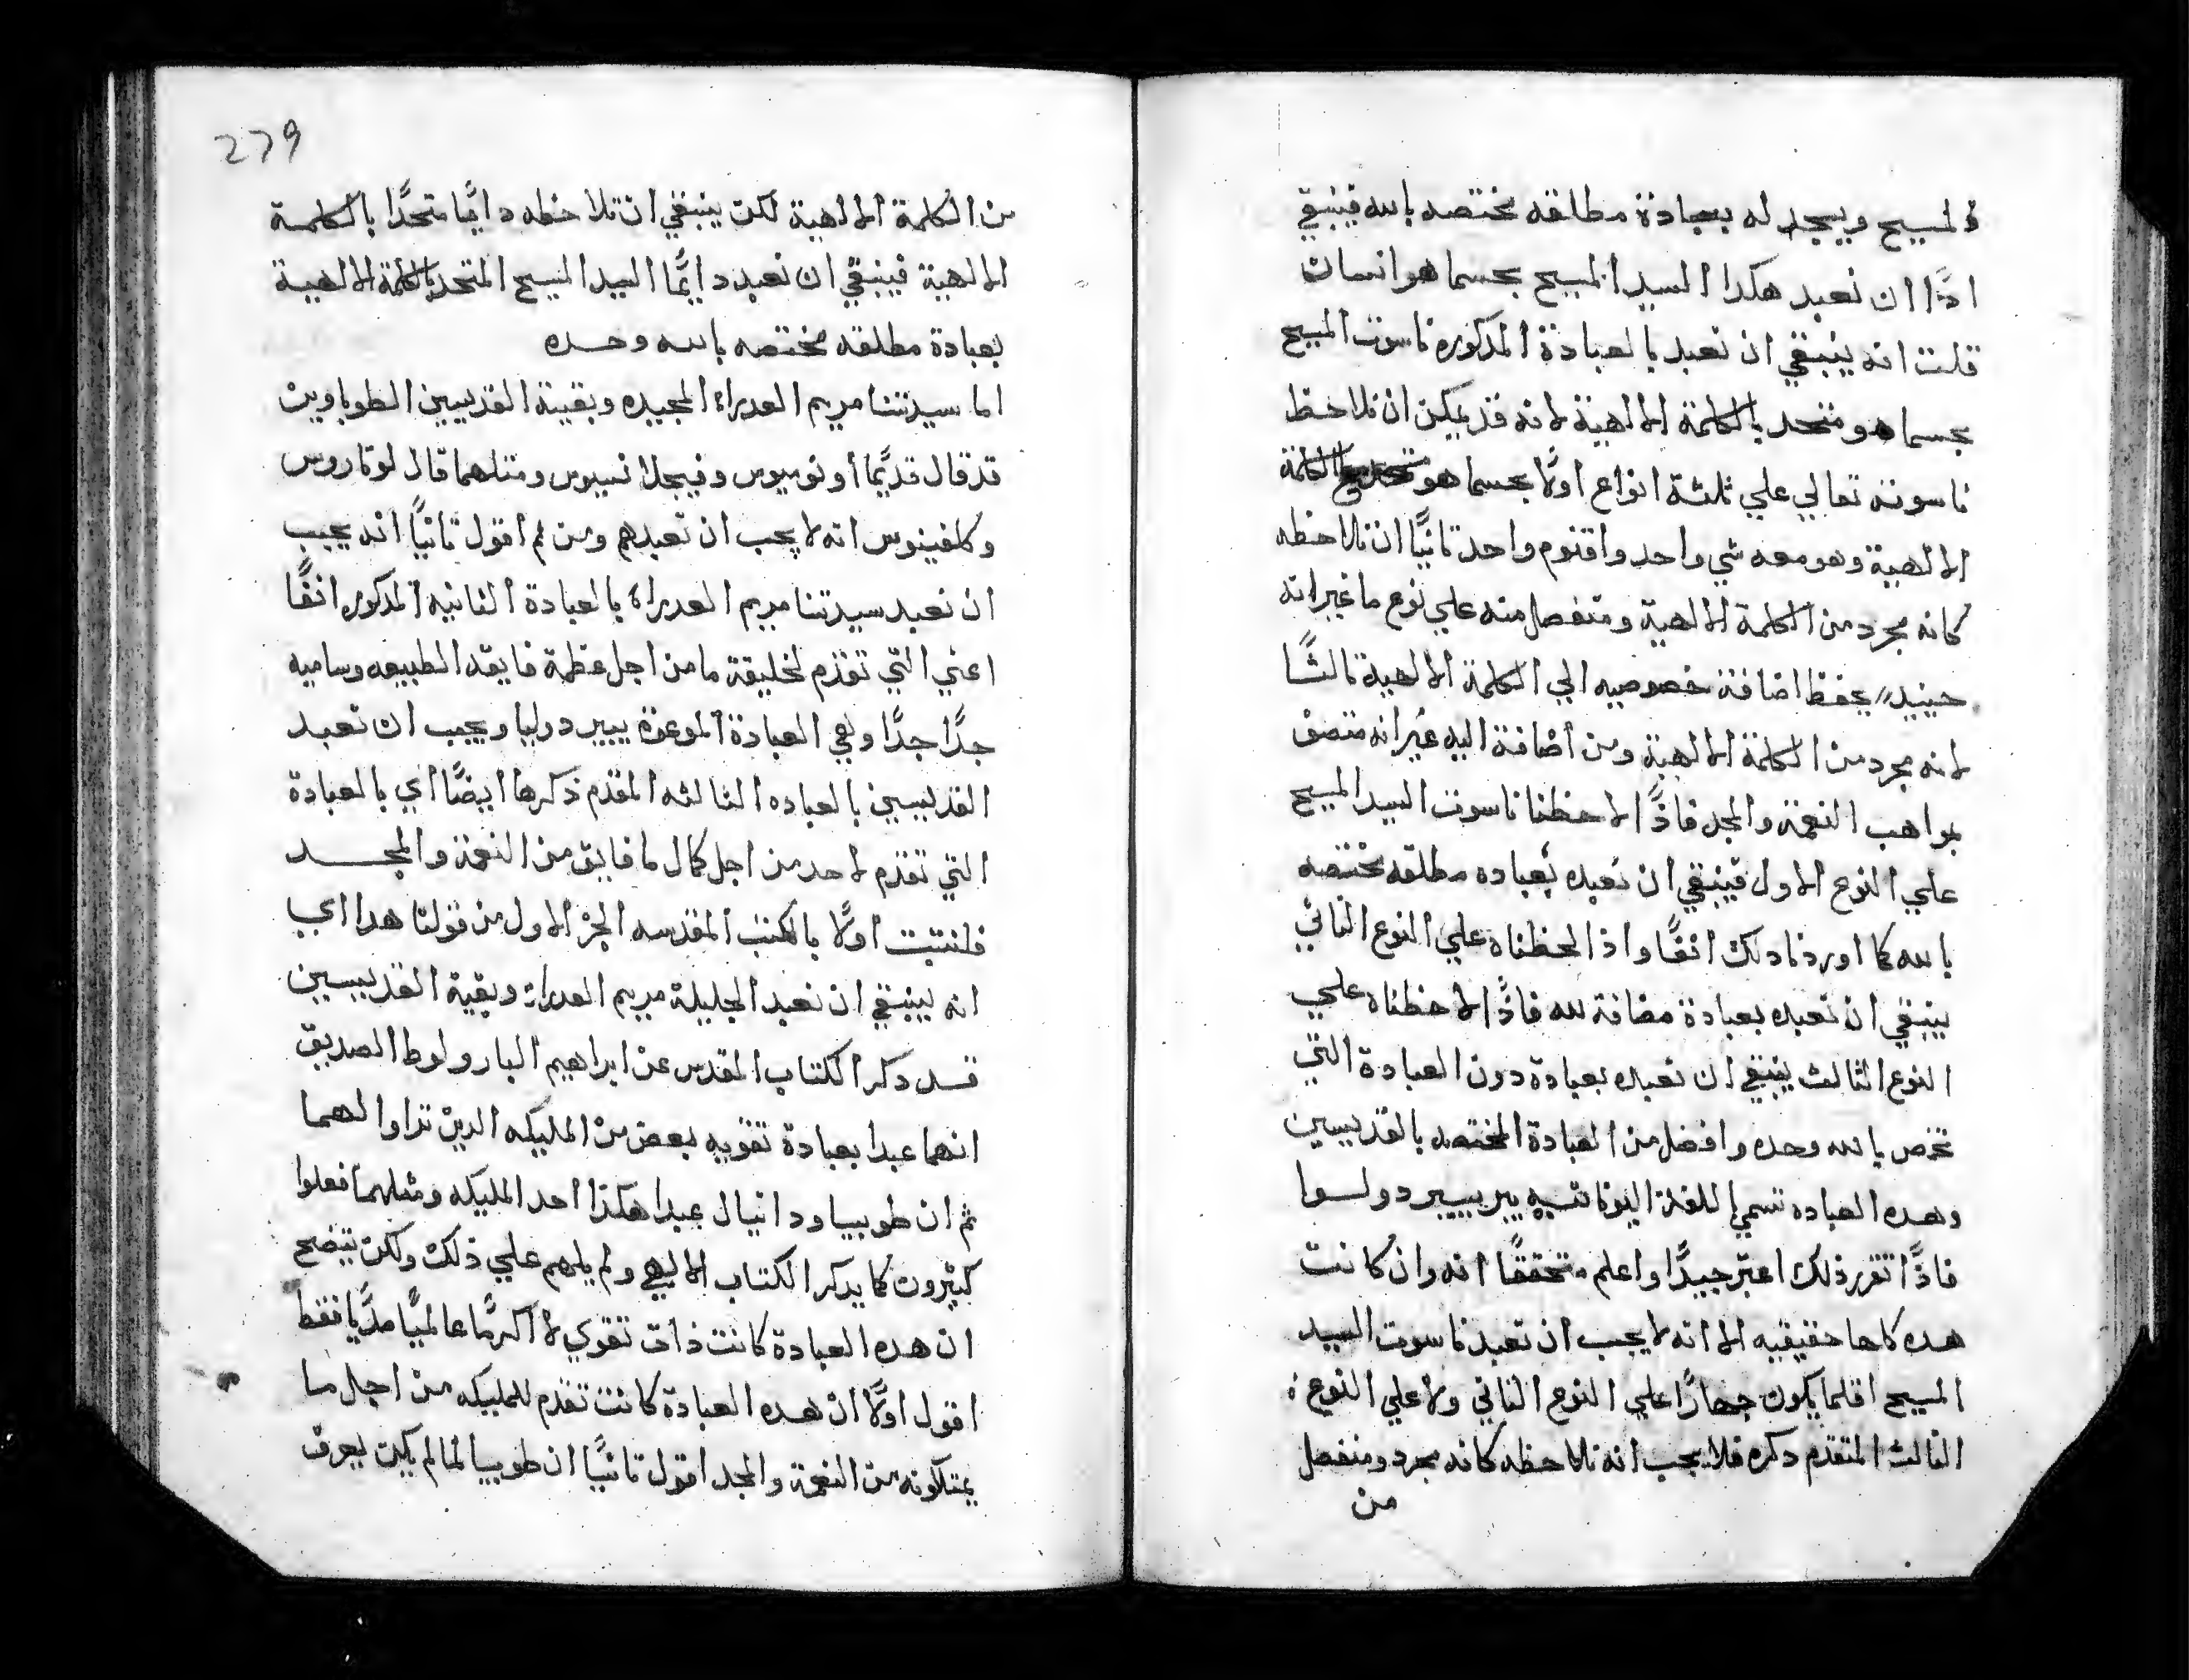 المسيح ويسجد له بعبادة مطلقه مختصه بالله فينبغي
اذًا ان نعبد هكدا السيد المسيح بجسما هو انسان
قلت انه ينبغي ان نعبد بالعبادة المدكوره ناسوت المسيح
بجسما هو متحد بالكلمة الالهية لانه قد يمكن ان نلاحظ
ناسوته تعالي علي ثلثة انواع اولًا بجسما هو الكلمة
الالهية وهو معه شي واحد واقنوم واحد تانيًا ان نلاحظه
كانه مجرد من الكلمة الالهية ومنفصل منه علي نوع ما غير انه
حينيد يحفظ اضافة خصوصيه الي الكلمة الالهية تالثًا
لانه مجرد من الكلمة الالهية ومن اضافة اليه غير انه متصف
بمواهب النعمة والمجد فاذًا لاحظنا ناسوت السيد المسيح
علي النوع الاول فينبغي ان نعبده بعباده مطلقه مختصه
بالله كما اوردنا دلك انفًا واذا لحظناه علي النوع التاني
ينبغي ان نعبده بعبادة مضافة لله فاذًا لاحظناه علي
النوع الثالث ينبغي ان نعبده بعبادة دون العبادة التي
تخص بالله وحده وافضل من العبادة المختصه بالقديسين
وهده العباده تسمي باللغة اليونانيه يبربيبر دولسوا
فاذًا تقرر ذلك اعتبر جيدًا واعلم متحققًا انه وان كانت
هده كلها حقيقيه الا انه لا يجب ان نعبد ناسوت السيد
المسيح اقلما يكون جهارًا علي النوع التاني ولا علي النوع
التالث المتقدم دكره فلا يجب انه نلاحظه كانه مجرد ومنفصل
من
279
من الكلمة الالهية لكن ينبغي ان نلاحظه دايمًا متحدًا بالكلمة
الالهية فينبغي ان نعبد دايمًا السيد المسيح المتحد بالكلمة الالهية
بعبادة مطلقه مختصه بالله وحده
اما سيدتنا مريم العدراء المجيده وبقية القديسين الطوباوين
قد قال قديمًا اونوميوس وفيجلانسيوس ومتلهما قال لوتاروس
وكلفينوس انه لا يجب ان نعبدهم ومن ثم اقول تانيًا انه يجب
ان نعبد سيدتنا مريم العدراء بالعبادة الثانيه المدكوره انفًا
اعني التي تقدم لخليقة ما من اجل عظمة فايقه الطبيعه وساميه
جدًا جدًا وهي العبادة المدعوة يبير دوليا ويجب ان نعبد
القديسين بالعباده الثالثه المقدم ذكرها ايضًا اي بالعبادة
التي تقدم لاحد من اجل كمال ما فايق من النعمة والمجد
فلنتبت اولًا بالكتب المقدسه الجز الاول من قولنا هدا اي
انه ينبغي ان نعبد الجليلة مريم العدراء وبقية القديسين
قد دكر الكتاب المقدس عن ابراهيم البار ولوط الصديق
انهما عبدا بعبادة تقويه بعض من المليكه الدين تراوا لهما
ثم ان طوبيا ودانيال عبدا هكذا احد المليكه ومثلهما فعلوا
كثيرون كما يدكر الكتاب الالهي ولم يلمهم علي ذلك ولكن يتضح
ان هده العبادة كانت ذات تقوي لا اكرمًا عالميًا مديًا فقط
اقول اولًا ان هده العبادة كانت تقدم للمليكه من اجل ما
يمتلكونه من النعمة والمجد اقول تانيًا ان طوبيا لما لم يكن يعرف